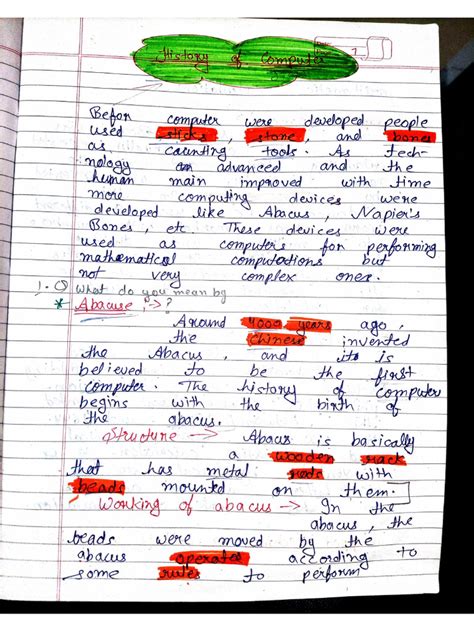 History of Computer
1
Befor computer were developed people
used sticks, stone, and bones
as counting tools. As tech-
nology an advanced and the
human main improved with time
more computing devices were
developed like Abacus, Napier's
Bones, etc. These devices were
used as computers for performing
mathematical computations but
not very complex ones.
1. Q What do you mean by
* Abacuse :→ ?
Around 4000 years ago,
the Chinese invented
the Abacus, and its is
believed to be the first
computer. The history of computer
begins with the birth of
the abacus.
Structure → Abacus is basically
a wooden rack
that has metal rods with
beads mounted on them.
Working of abacus → In the
abacus, the
beads were moved by the
abacus operates according to
some rules to perform